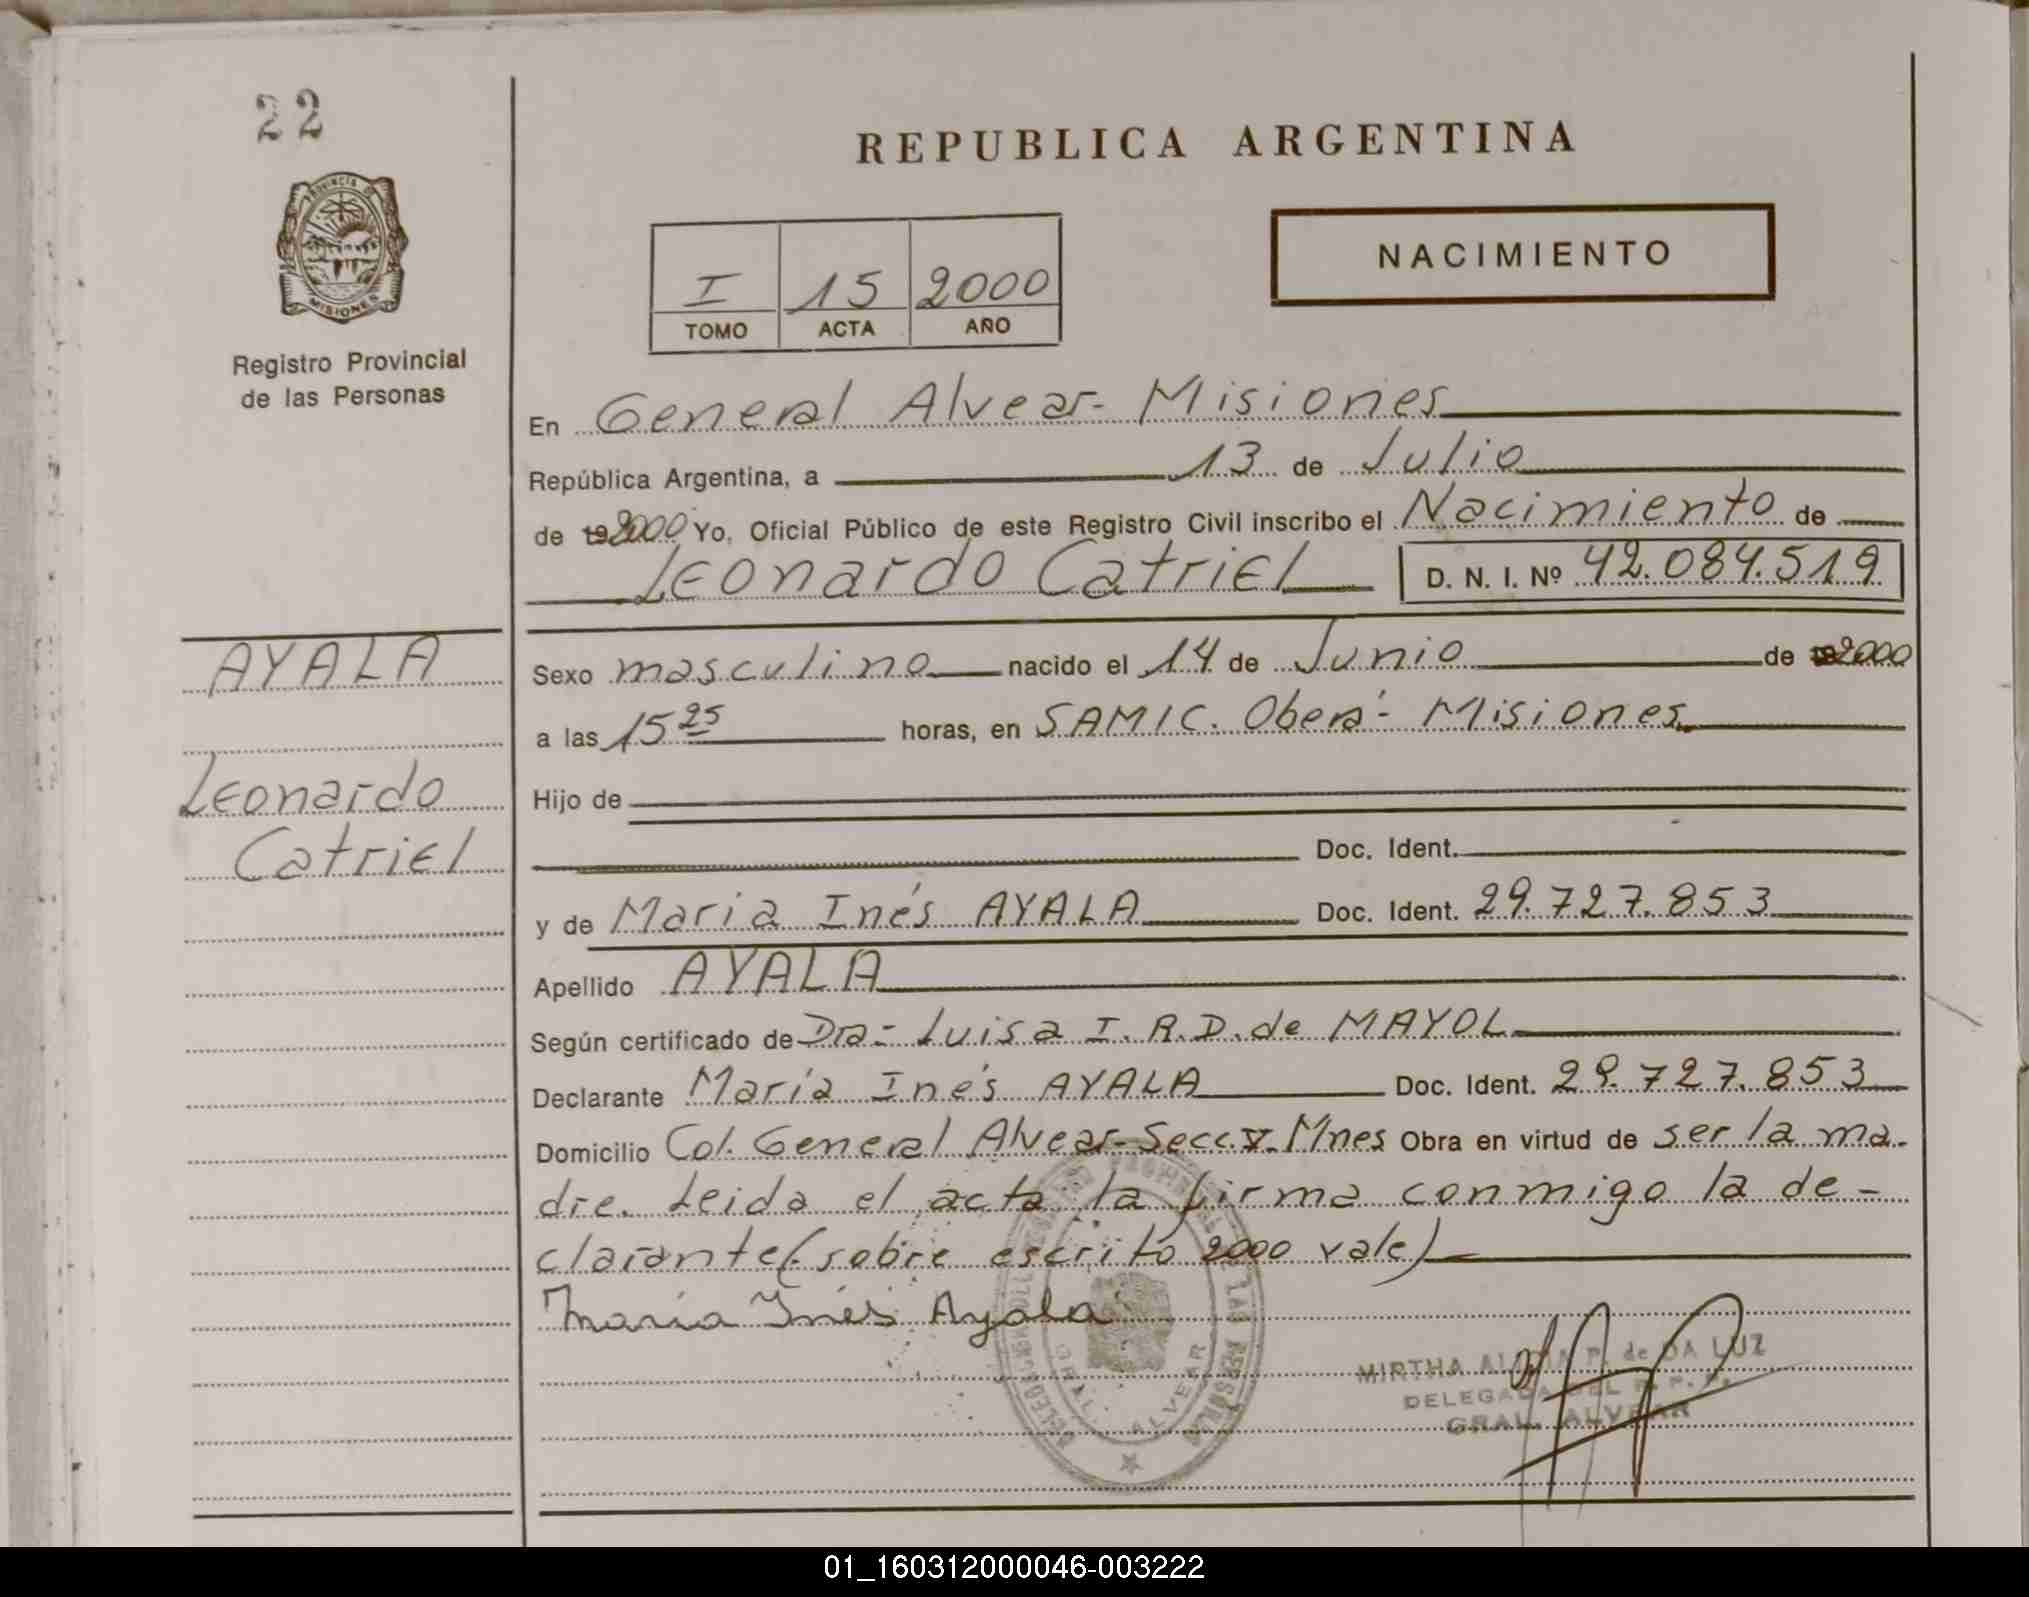 22
REPUBLICA ARGENTINA
PROVINCIA DE
MISIONES
Registro Provincial
de las Personas
I 15 2000
TOMO ACTA AÑO
NACIMIENTO
En General Alvear - Misiones
República Argentina, a 13 de Julio
de 192000 Yo, Oficial Público de este Registro Civil inscribo el Nacimiento de
Leonardo Catriel D. N. I. Nº 42.084.519
AYALA
Leonardo
Catriel
Sexo masculino nacido el 14 de Junio de 192000
a las 15 25 horas, en SAMIC. Oberá - Misiones
Hijo de
Doc. Ident.
y de Maria Inés AYALA Doc. Ident. 29.727.853
Apellido AYALA
Según certificado de Dra - Luisa I. R. D. de MAYOL
Declarante María Inés AYALA Doc. Ident. 29.727.853
Domicilio Col. General Alvear - Secc. V. Mnes Obra en virtud de ser la ma-
dre. Leida el acta la firma conmigo la de-
clarante (sobre escrito 2000 vale)
María Inés Ayala
LAS PERSONAS
GRAL. ALVEAR
MIRTHA P. de DA LUZ
DELEGADA DEL R. P. P.
GRAL. ALVEAR
01_160312000046-003222